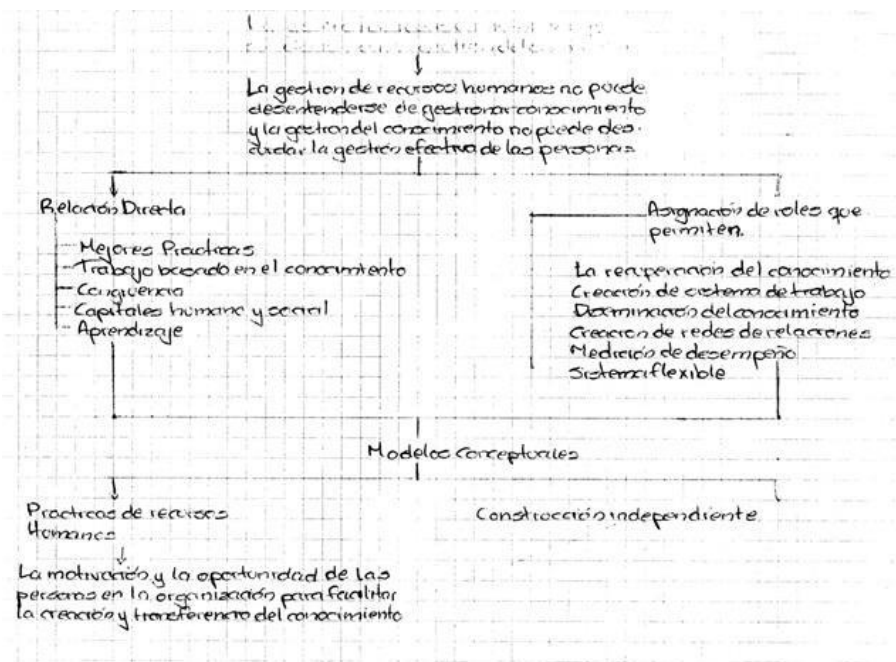 La gestion de recursos humanos no puede
desentenderse de gestionar conocimiento
y la gestion del conocimiento no puede des-
cuidar la gestión efectiva de las personas
Relación Directa
- Mejores Practicas
- Trabajo basado en el conocimiento
- Congruencia
- Capitales humano y social
- Aprendizaje
Asignación de roles que
permiten.
La recuperación del conocimiento
Creación de sistema de trabajo
Diseminación del conocimiento
Creacion de redes de relaciones
Medición de desempeño
Sistema flexible
Modelos conceptuales
Practicas de recursos
Humanos
Construcción independiente
La motivación y la oportunidad de las
personas en la organización para facilitar
la creación y transferencia del conocimiento